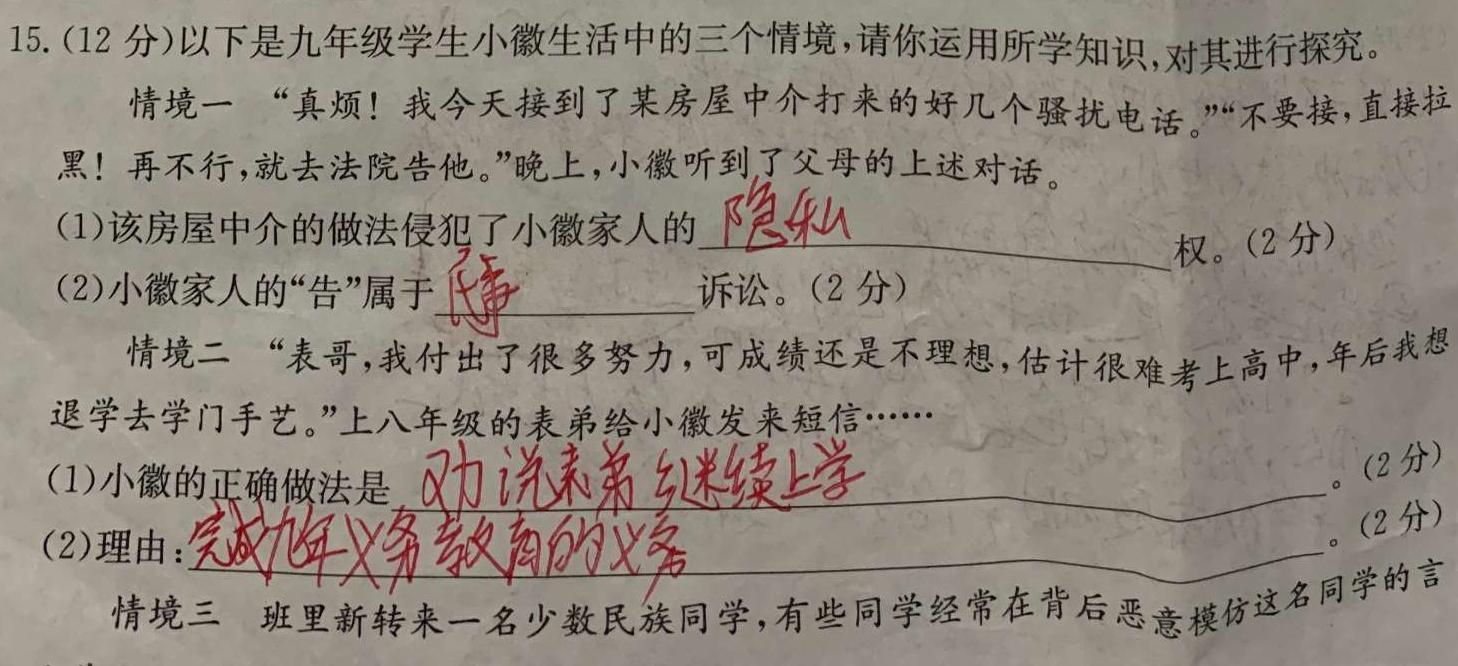 15.(12分)以下是九年级学生小徽生活中的三个情境,请你运用所学知识,对其进行探究。
情境一 “真烦!我今天接到了某房屋中介打来的好几个骚扰电话。”“不要接,直接拉
黑!再不行,就去法院告他。”晚上,小徽听到了父母的上述对话。
(1)该房屋中介的做法侵犯了小徽家人的 隐私 权。(2分)
(2)小徽家人的“告”属于 民事 诉讼。(2分)
情境二 “表哥,我付出了很多努力,可成绩还是不理想,估计很难考上高中,年后我想
退学去学门手艺。”上八年级的表弟给小徽发来短信……
(1)小徽的正确做法是 劝说表弟继续上学 。(2分)
(2)理由:完成九年义务教育的义务 。(2分)
情境三 班里新转来一名少数民族同学,有些同学经常在背后恶意模仿这名同学的言